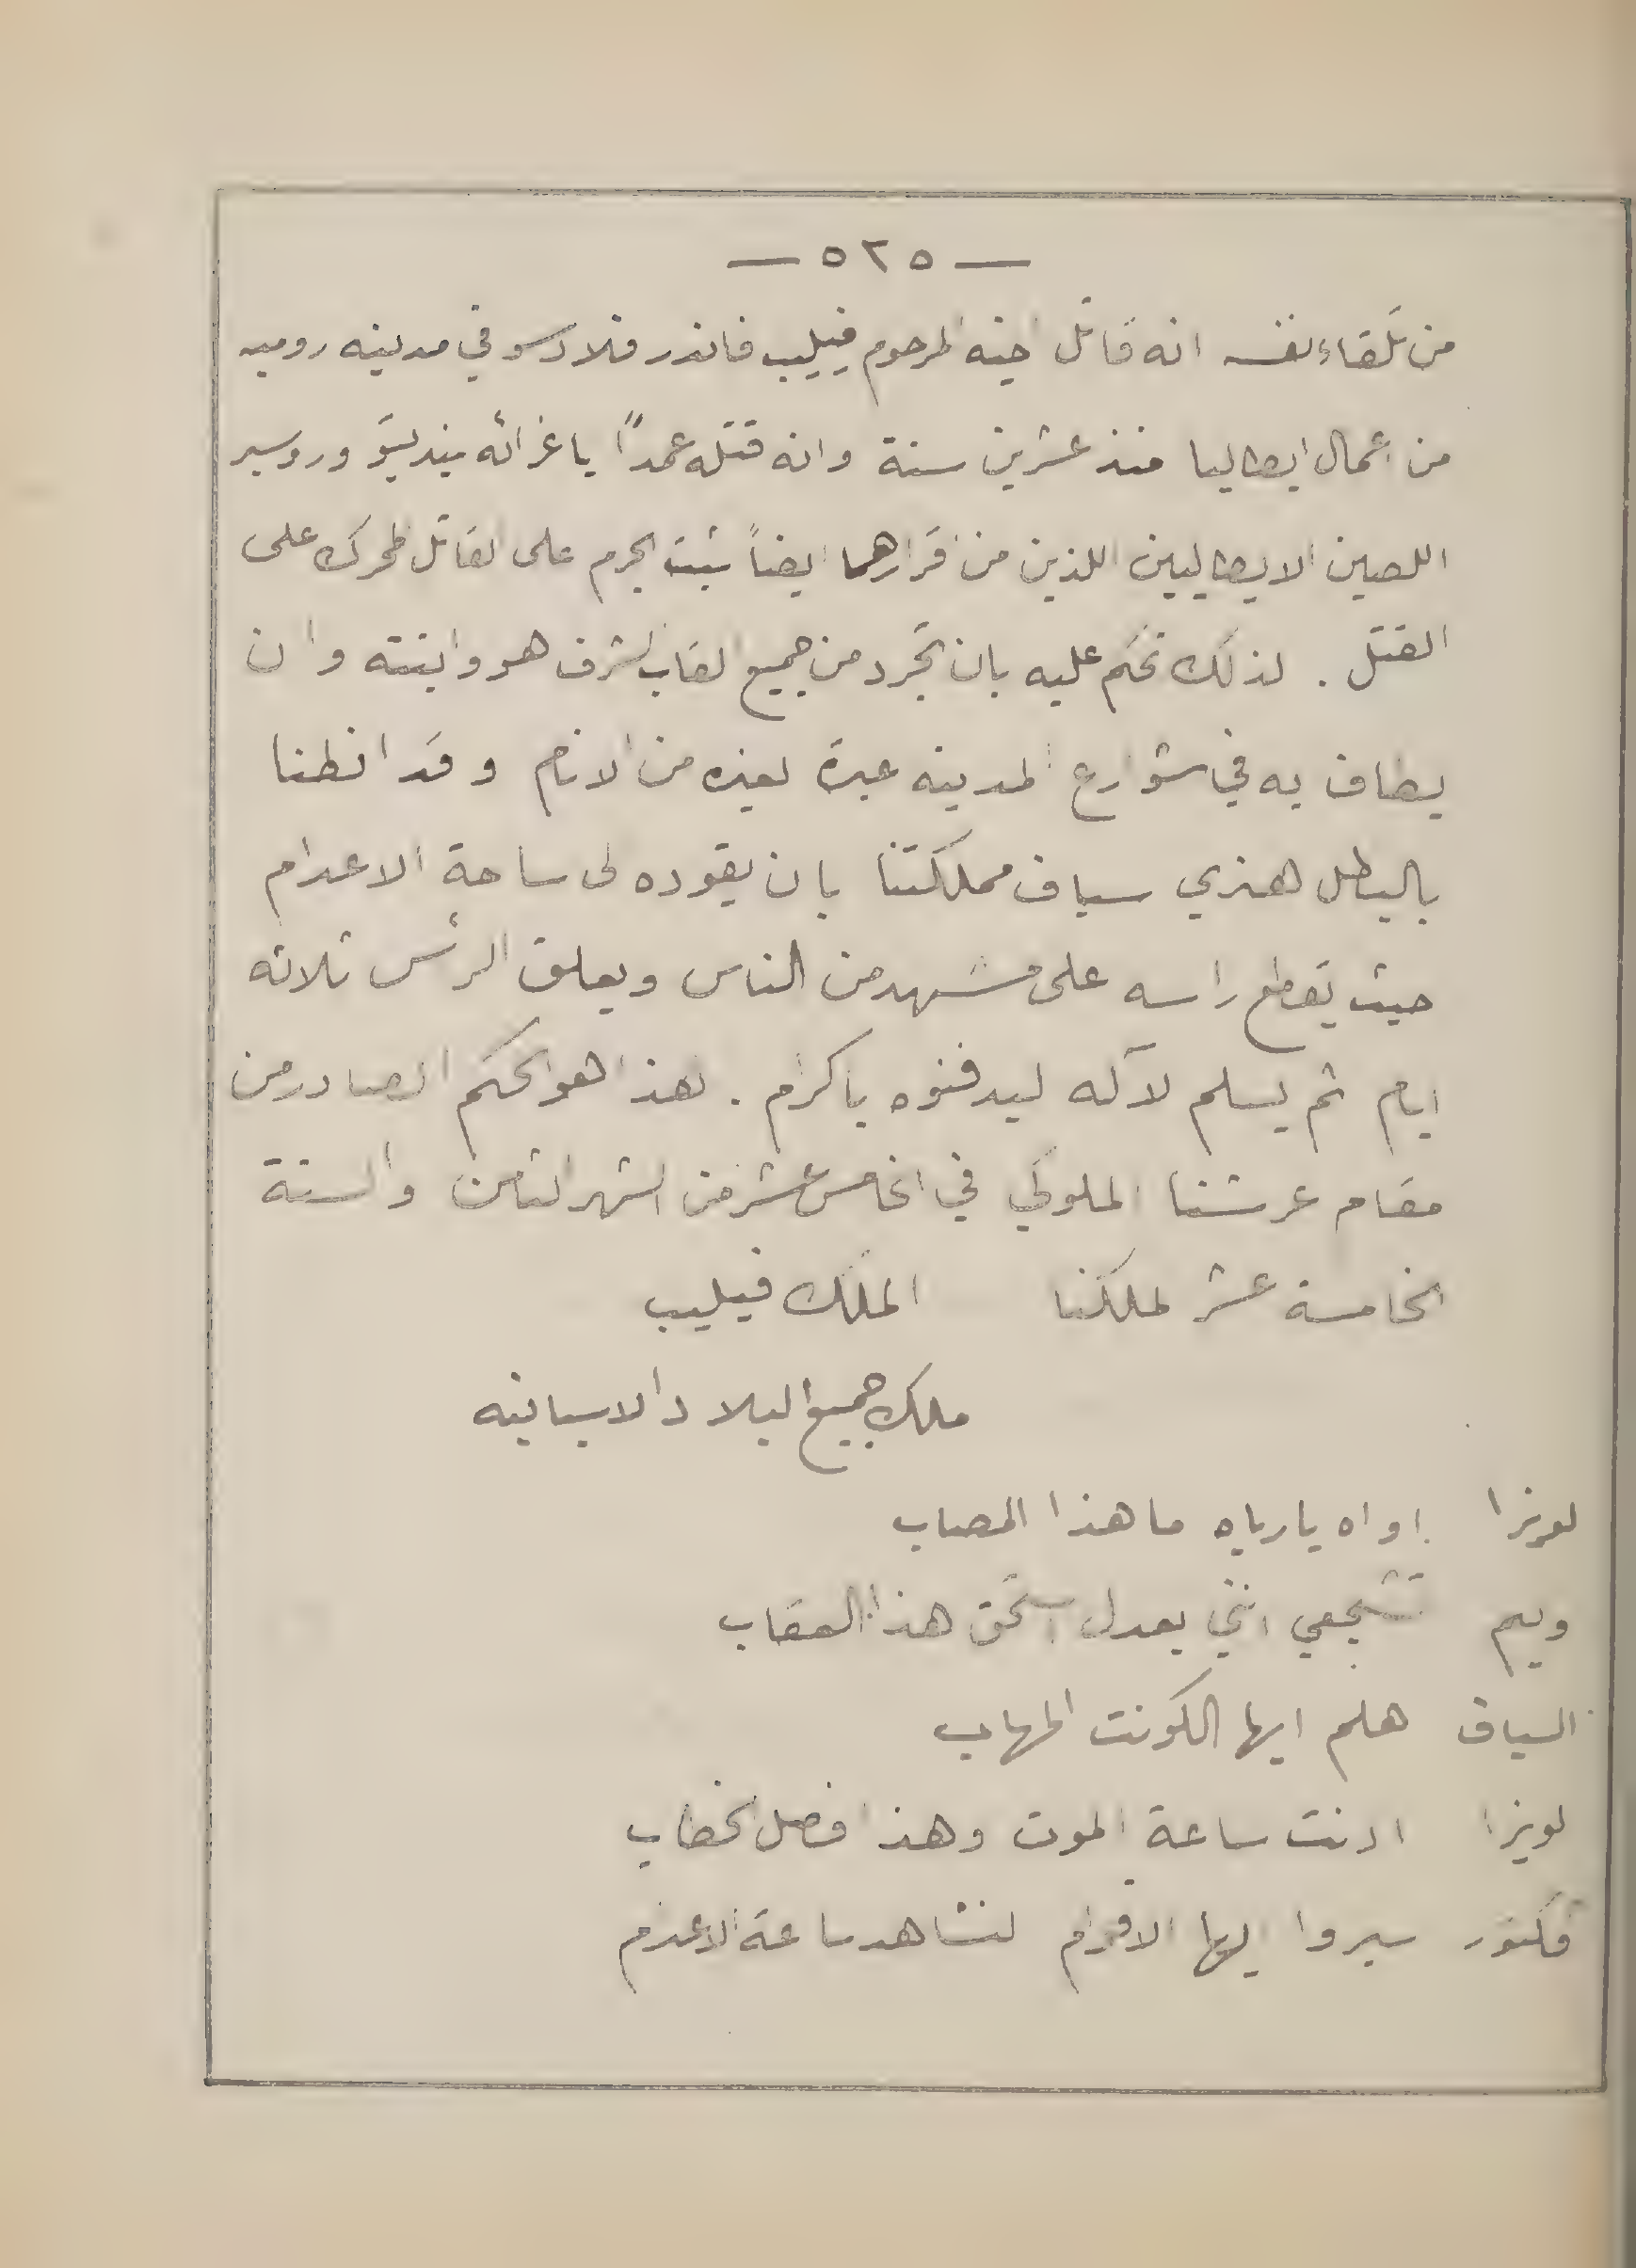 — ٥٢٥ —
من تلقاء نفسه انه قاتل اخيه المرحوم فيليب فاندر فلادسو في مدينه روميه
من اعمال ايطاليا منذ عشرين سنة وانه قتله عمداً باغرائه بنديتو وروسير
اللصين الايطاليين اللذين من اقرارهما ايضاً يثبت الجرم على القاتل المحرك على
القتل . لذلك نحكم عليه بان يجرد من جميع القاب الشرف هو وابنته وان
يطاف به في شوارع المدينه عبرة لغيره من الانام وقد انطنا
بالبطل هنري سياف مملكتنا بان يقوده الى ساحة الاعدام
حيث يقطع راسه على مشهد من الناس ويعلق الرئس ثلاثه
ايام ثم يسلم لآله ليدفنوه باكرام . هذا هو الحكم الصادر من
مقام عرشنا الملوكي في الخامس عشر من الشهر الثامن والسنة
الخامسة عشر لملكنا الملك فيليب
ملك جميع البلاد الاسبانيه
لويزا اواه يارباه ما هذا المصاب
وليم تشجعي انني بعدل استحق هذا العقاب
السياف هلم ايها الكونت المهاب
لويزا ادنت ساعة الموت وهذا فصل الخطاب
فكتور سيروا ايها الاقوام لنشاهد ساعة الاعدام